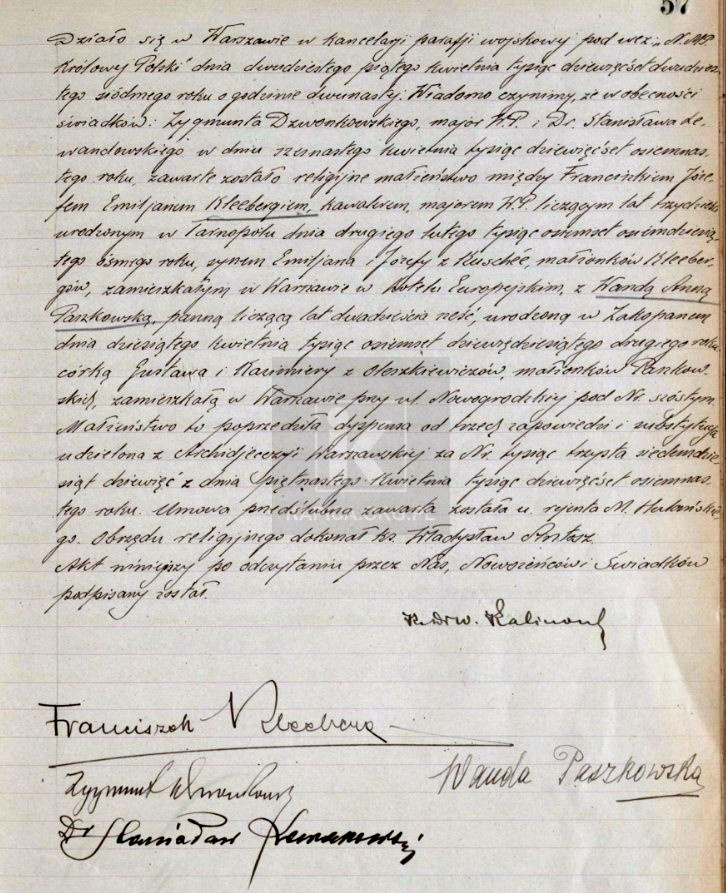 57
Działo się w Warszawie w kancelarji parafji wojskowy pod wez. „N.M.P.
Królowy Polski" dnia dwudziestego piątego kwietnia tysiąc dziewięćset dwudzies-
tego siódmego roku o godzinie dwunasty. Wiadomo czynimy, że w obecności
świadków: Zygmunta Dzwonkowskiego, major W.P. i Dr. Stanisława Le-
wandowskiego w dniu szesnastego kwietnia tysiąc dziewięćset osiemnas-
tego roku, zawarte zostało religijne małżeństwo między Franciszkiem Józe-
fem Emiljanem Kleebergiem, kawalerem, majorem W.P. liczącym lat trzydzieści
urodzonym w Tarnopolu dnia drugiego lutego tysiąc osiemset osiemdziesią-
tego ósmego roku, synem Emiljana i Józefy z Kuschée, małżonków Kleeber-
gów, zamieszkałym w Warszawie w Hotelu Europejskim, z Wandą Anną
Paszkowską, panną liczącą lat dwadzieścia sześć, urodzoną w Zakopanem
dnia dziesiątego kwietnia tysiąc osiemset dziewięćdziesiątego drugiego roku
córką Gustawa i Kazimiery z Oleszkiewiczów, małżonków Paszkow-
skich, zamieszkałą w Warszawie przy ul. Nowogrodzkiej pod Nr. szóstym.
Małżeństwo to poprzedziła dyspensa od trzech zapowiedzi i substytucja
udzielona z Archidjecezji Warszawskiej za Nr. tysiąc trzysta siedemdzie-
siąt dziewięć z dnia piętnastego kwietnia tysiąc dziewięćset osiemnas-
tego roku. Umowa przedślubna zawarta została u rejenta M.
go. Obrzędu religijnego dokonał ks. Władysław Antosz.
Akt niniejszy po odczytaniu przez Nas, Nowożeńców i Świadków
podpisany został.
Kalinowski
Franciszek Kleeberg
Wanda Paszkowska
Zygmunt Dzwonkowski
Dr Stanisław Lewandowski
KAPIGA.ORG.PL